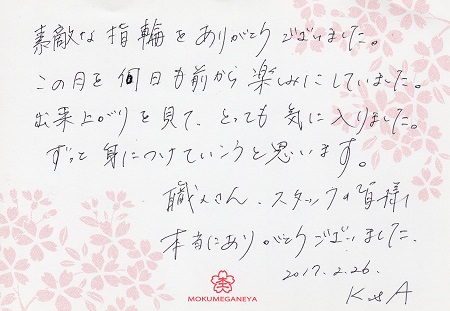 素敵な指輪をありがとうございました。
この日を何日も前から楽しみにしていました。
出来上がりを見て、とっても気に入りました。
ずっと身につけていこうと思います。
職人さん、スタッフの皆様、
本当にありがとうございました。
2017.2.26.
K & A
MOKUMEGANEYA